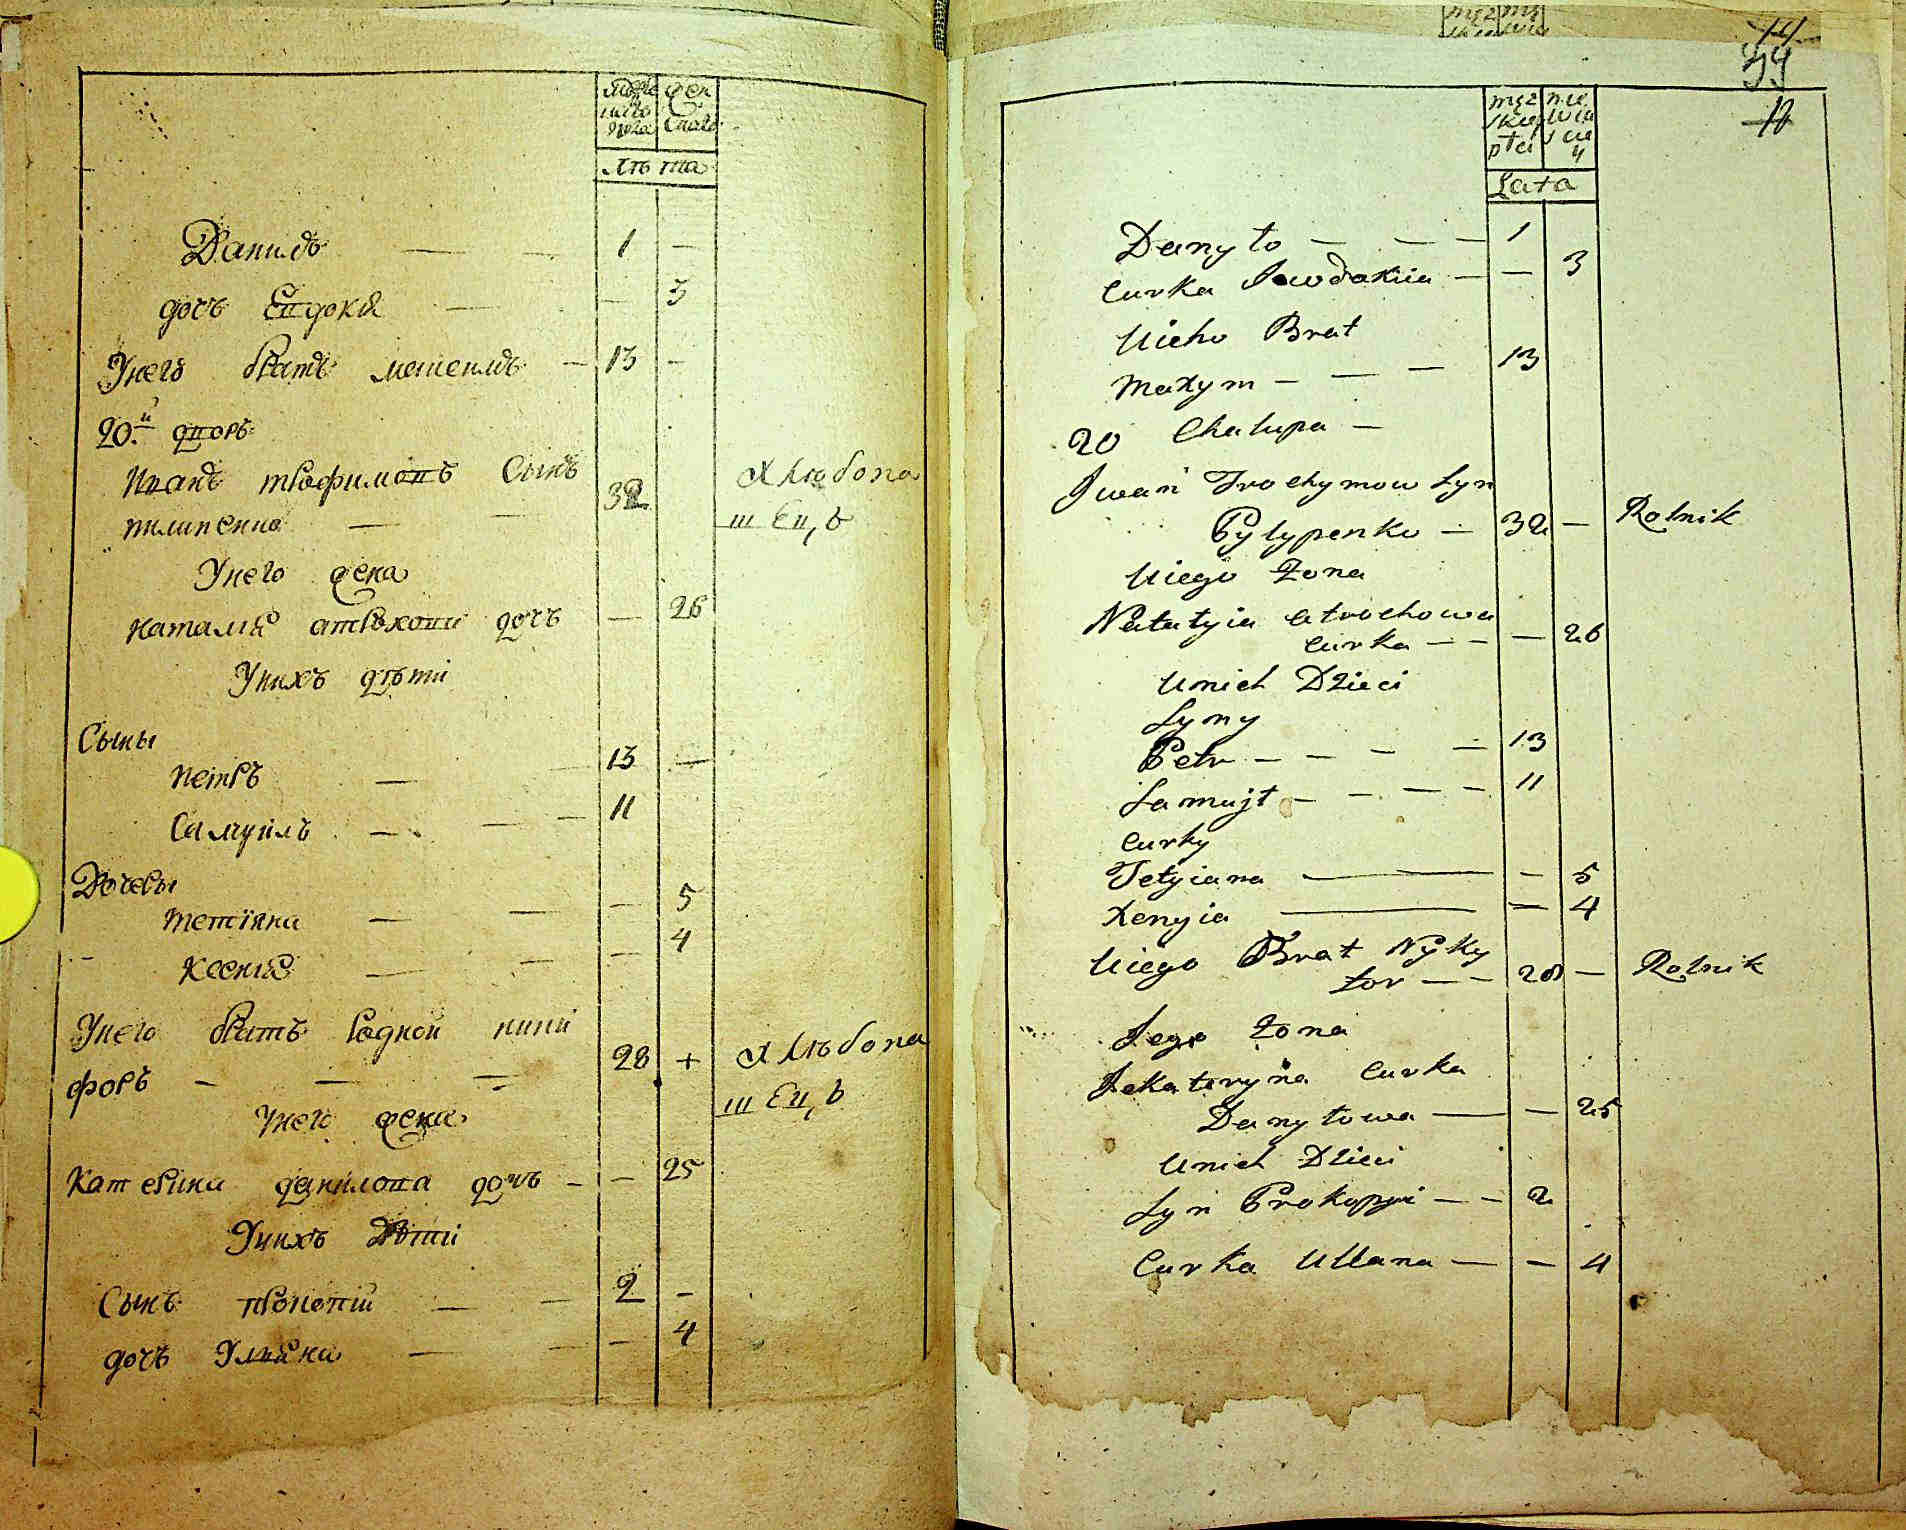 женска
лѣта
Данило — — 1 —
дочь Евдокія — — 3
Унего братъ — 13 —
20.й дворъ
Иванъ трофимовъ Сынъ
пилипенко — — 32
Хлѣбопа
шецъ
Унего жена
наталія дочь — 26
Унихъ дѣти
Сыны
петръ — — 13 —
Самуилъ — — — 11
Дочеры
тетіяна — — — 5
Ксенія — — — 4
Унего братъ родной ники
форъ — — — 28 +
Хлѣбопа
шецъ
Унего жена
Катерина данилова дочь — — 25
Унихъ Дѣти
Сынъ прокопій — — 2 —
дочь Уліяна — — — 4
14
39
10
męz nie
skiey wia
płci scie
y
Lata
Danyło — — — 1
Curka Jewdokiia — — 3
Uieho Brat
Maxym — — — 13
20 Chalupa —
Jwan Trochymow Syn
Pylypenko — 32 — Rolnik
Uiego Żona
Natalyia Atrochowa
Curka — — — 26
Unich Dzieci
Syny
Petr — — — — 13
Samujł — — — — 11
Curky
Tetyiana — — 5
Xenyia — — 4
Uiego Brat Nyky
for — — 28 — Rolnik
Jego Żona
Jekateryna Curka
Danyłowa — — 25
Unich Dzieci
Syn Prokopyi — — 2
Curka Ullana — — 4